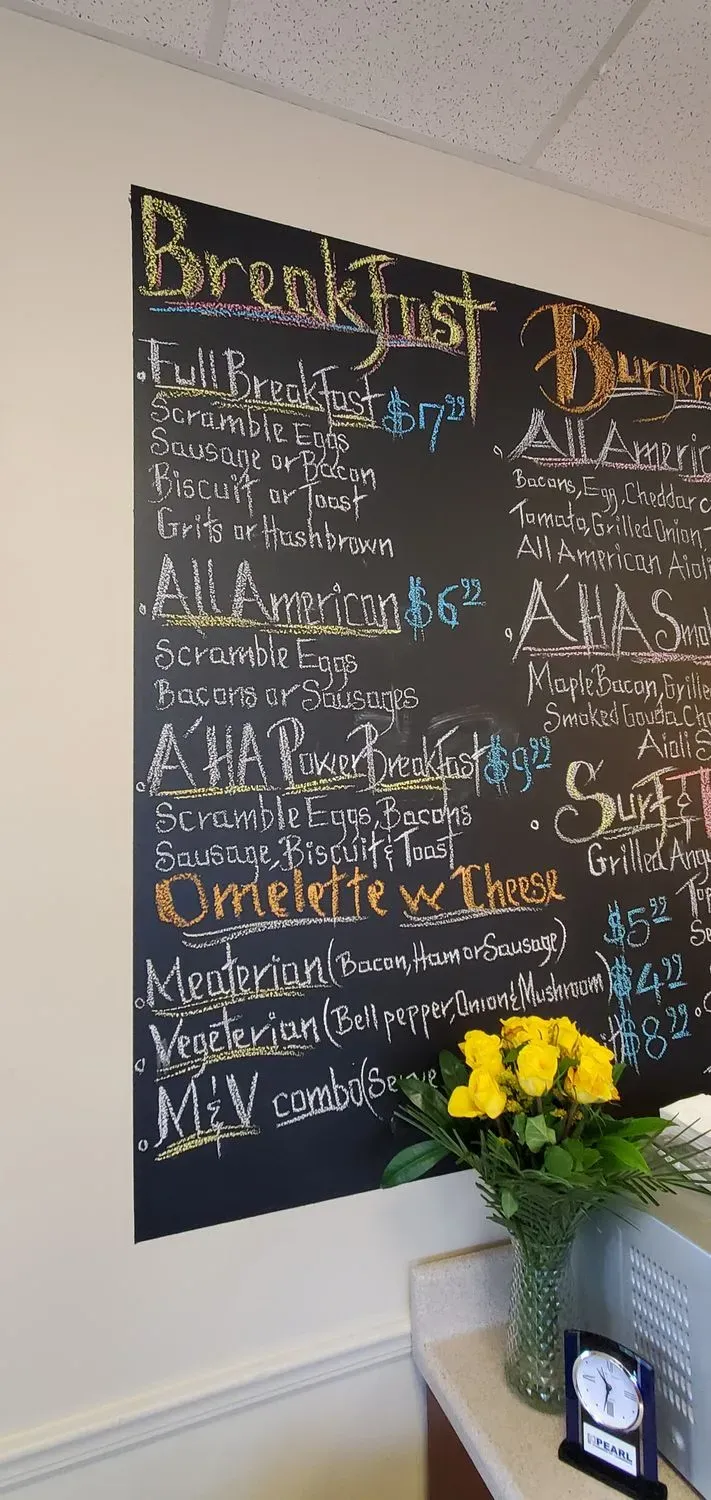 BreakFast
Full BreakFast $7.99
Scramble Eggs
Sausage or Bacon
Biscuit or Toast
Grits or Hashbrown
All American $6.99
Scramble Eggs
Bacons or Sausages
A'HA Power BreakFast $9.99
Scramble Eggs, Bacons
Sausage, Biscuit & Toast
Omelette w Cheese
Meaterian (Bacon, Ham or Sausage) $5.99
Vegeterian (Bell pepper, Onion & Mushroom) $4.99
M & V combo (Serve $8.99
Burger
All Americ
Bacons, Egg, Cheddar c
Tomato, Grilled Onion,
All American Aioli
A'HA Smo
Maple Bacon, Grille
Smoked Gouda Ch
Aioli S
Surf &
Grilled Ang
PEARL